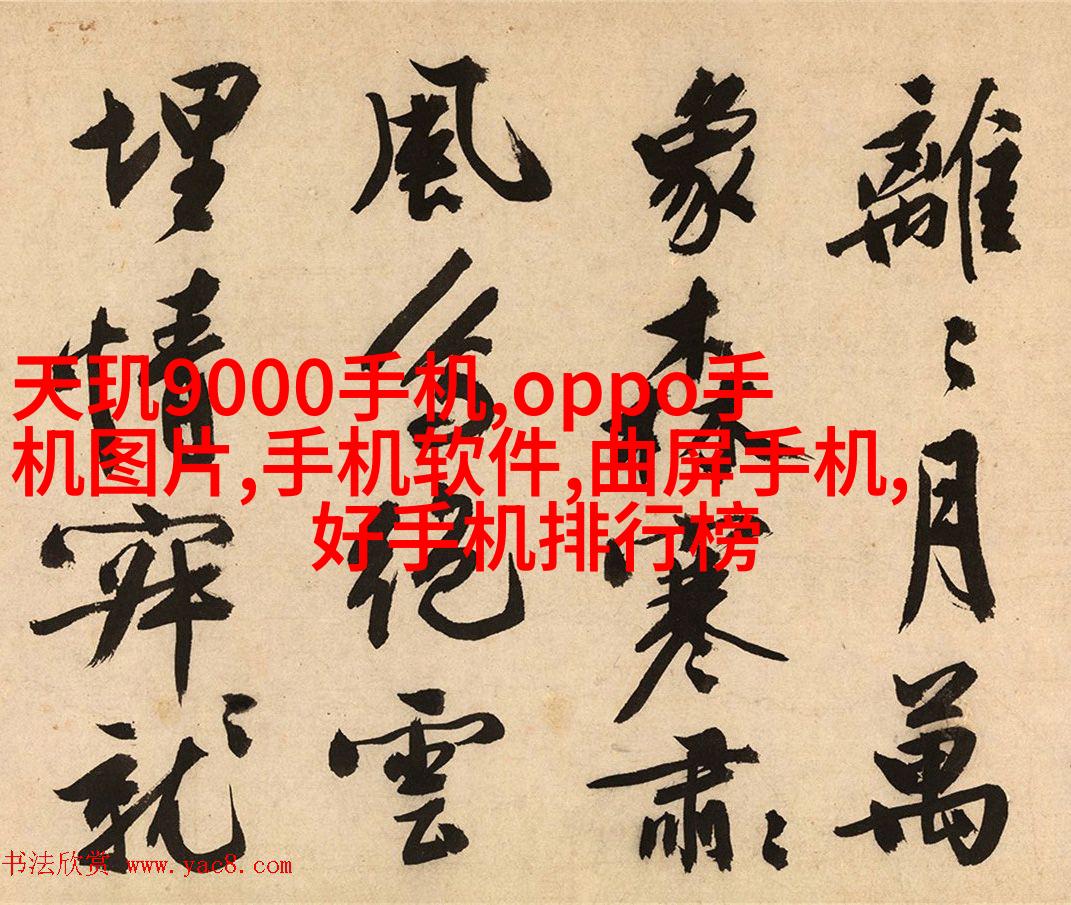 離〻月萬
象森寒肅〻
風絕雲
埋情就
天玑9000手机,oppo手
机图片,手机软件,曲屏手机,
好手机排行榜
书法欣赏 www.yac8.com